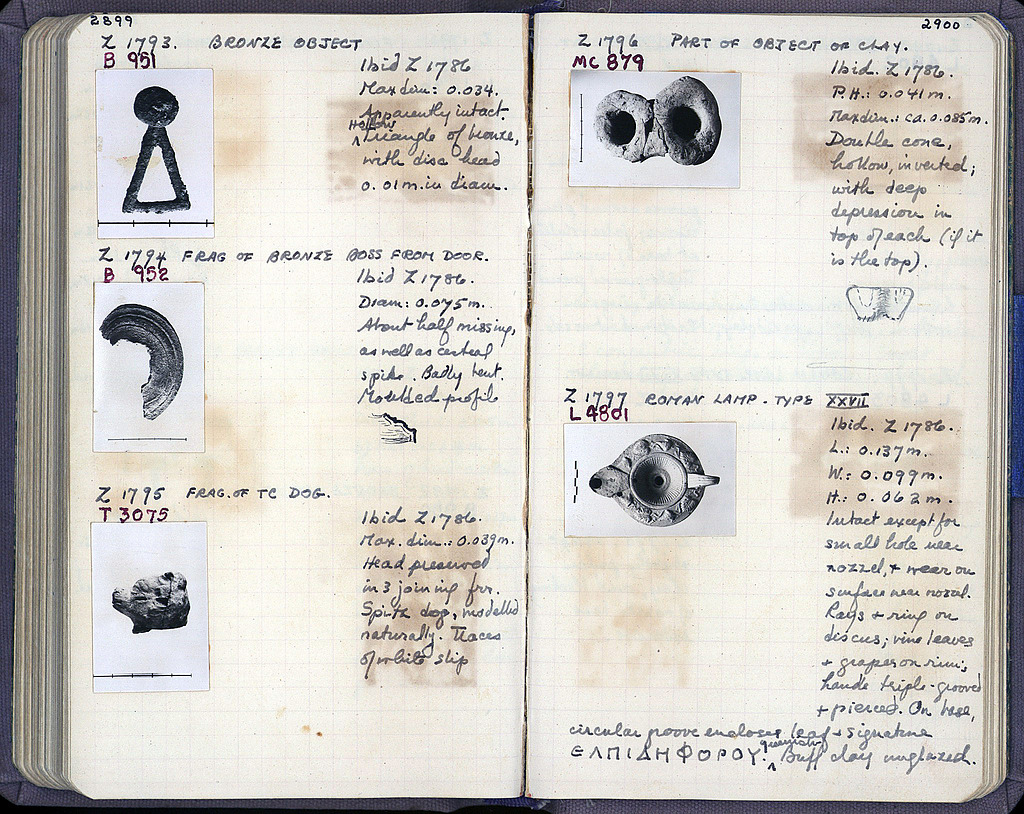 2899
Z 1793. BRONZE OBJECT
B 951
Ibid Z 1786
Max dim: 0.034.
Apparently intact.
Hollow
^ triangle of bronze,
with disc head
0.01 m. in diam.
Z 1794 FRAG OF BRONZE BOSS FROM DOOR.
B 952
Ibid Z 1786.
Diam: 0.075 m.
About half missing,
as well as central
spike. Badly bent.
Moulded profile
Z 1795 FRAG. OF TC DOG.
T 3075
Ibid Z 1786.
Max. dim.: 0.039 m.
Head preserved
in 3 joining frr.
Spitz dog, modelled
naturally. Traces
of white slip
2900
Z 1796 PART OF OBJECT OF CLAY.
MC 879
Ibid. Z 1786.
P.H.: 0.041 m.
Max dim.: ca. 0.085 m.
Double cone,
hollow, inverted;
with deep
depression in
top of each (if it
is the top).
Z 1797 ROMAN LAMP. TYPE XXVII
L 4801
Ibid. Z 1786.
L.: 0.137 m.
W.: 0.099 m.
H.: 0.062 m.
Intact except for
small hole near
nozzel, + wear on
surface near nozzel.
Rays + ring on
discus; vine leaves
+ grapes on rim;
handle triple-grooved
+ pierced. On base,
circular groove encloses leaf + signature
ΕΛΠΙΔΗΦΟΡΟΥ. ^ Buff clay unglazed.